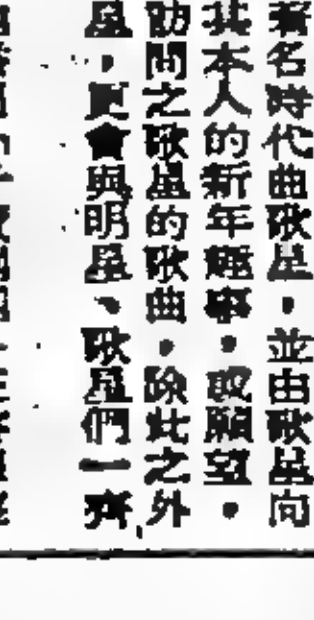 著名時代曲歌星，並由歌星向
其本人的新年趣事，或願望。
訪問之歌星的歌曲，除此之外
星，更會與明星、歌星們一齊